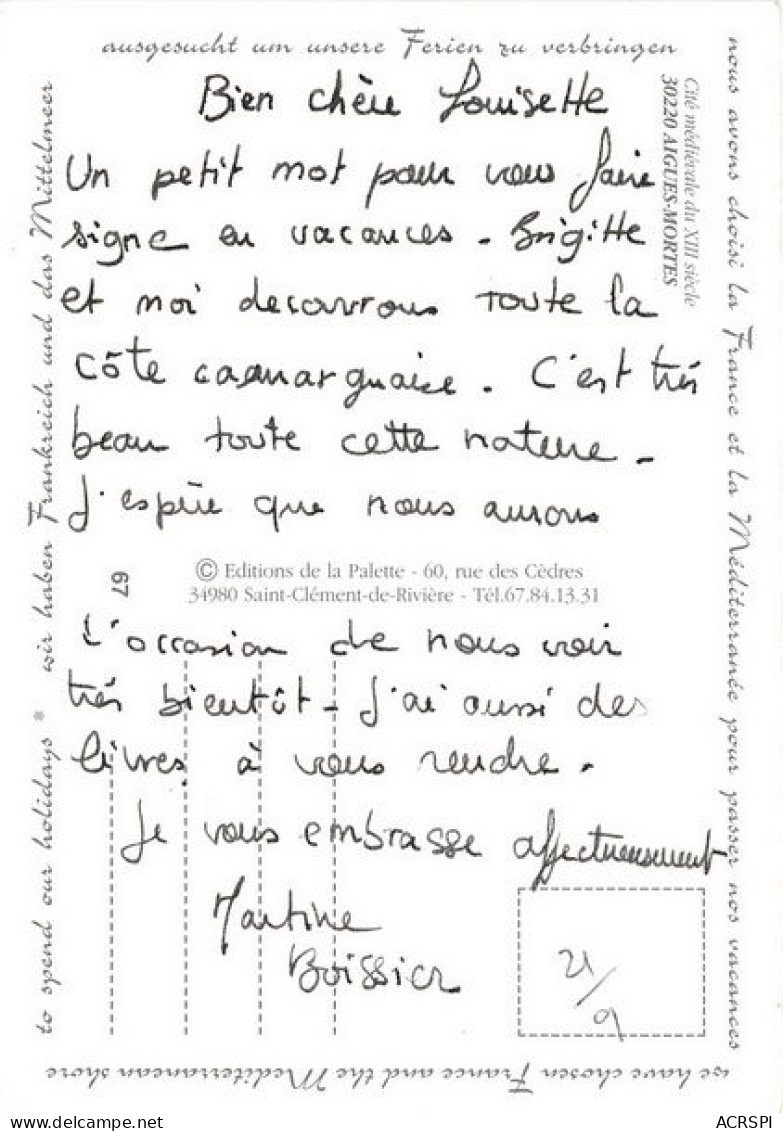 ausgesucht um unsere Ferien zu verbringen
nous avons choisi la France et la Méditerranée pour passer nos vacances
we have chosen France and the Mediterranean shore
to spend our holidays * wir haben Frankreich und das Mittelmeer
Cité médiévale du XIII siècle
30220 AIGUES-MORTES
Bien chère Louisette
Un petit mot pour vous faire
signe en vacances - Brigitte
et moi decouvrons toute la
côte camarguaise. C'est très
beau toute cette nature -
J'espère que nous aurons
© Editions de la Palette - 60, rue des Cèdres
34980 Saint-Clément-de-Rivière - Tél.67.84.13.31
67
l'occasion de nous voir
très bientôt - J'ai aussi des
livres à vous rendre -
Je vous embrasse affectueusement
Martine
Boissier
21/9
www.delcampe.net
ACRSPI